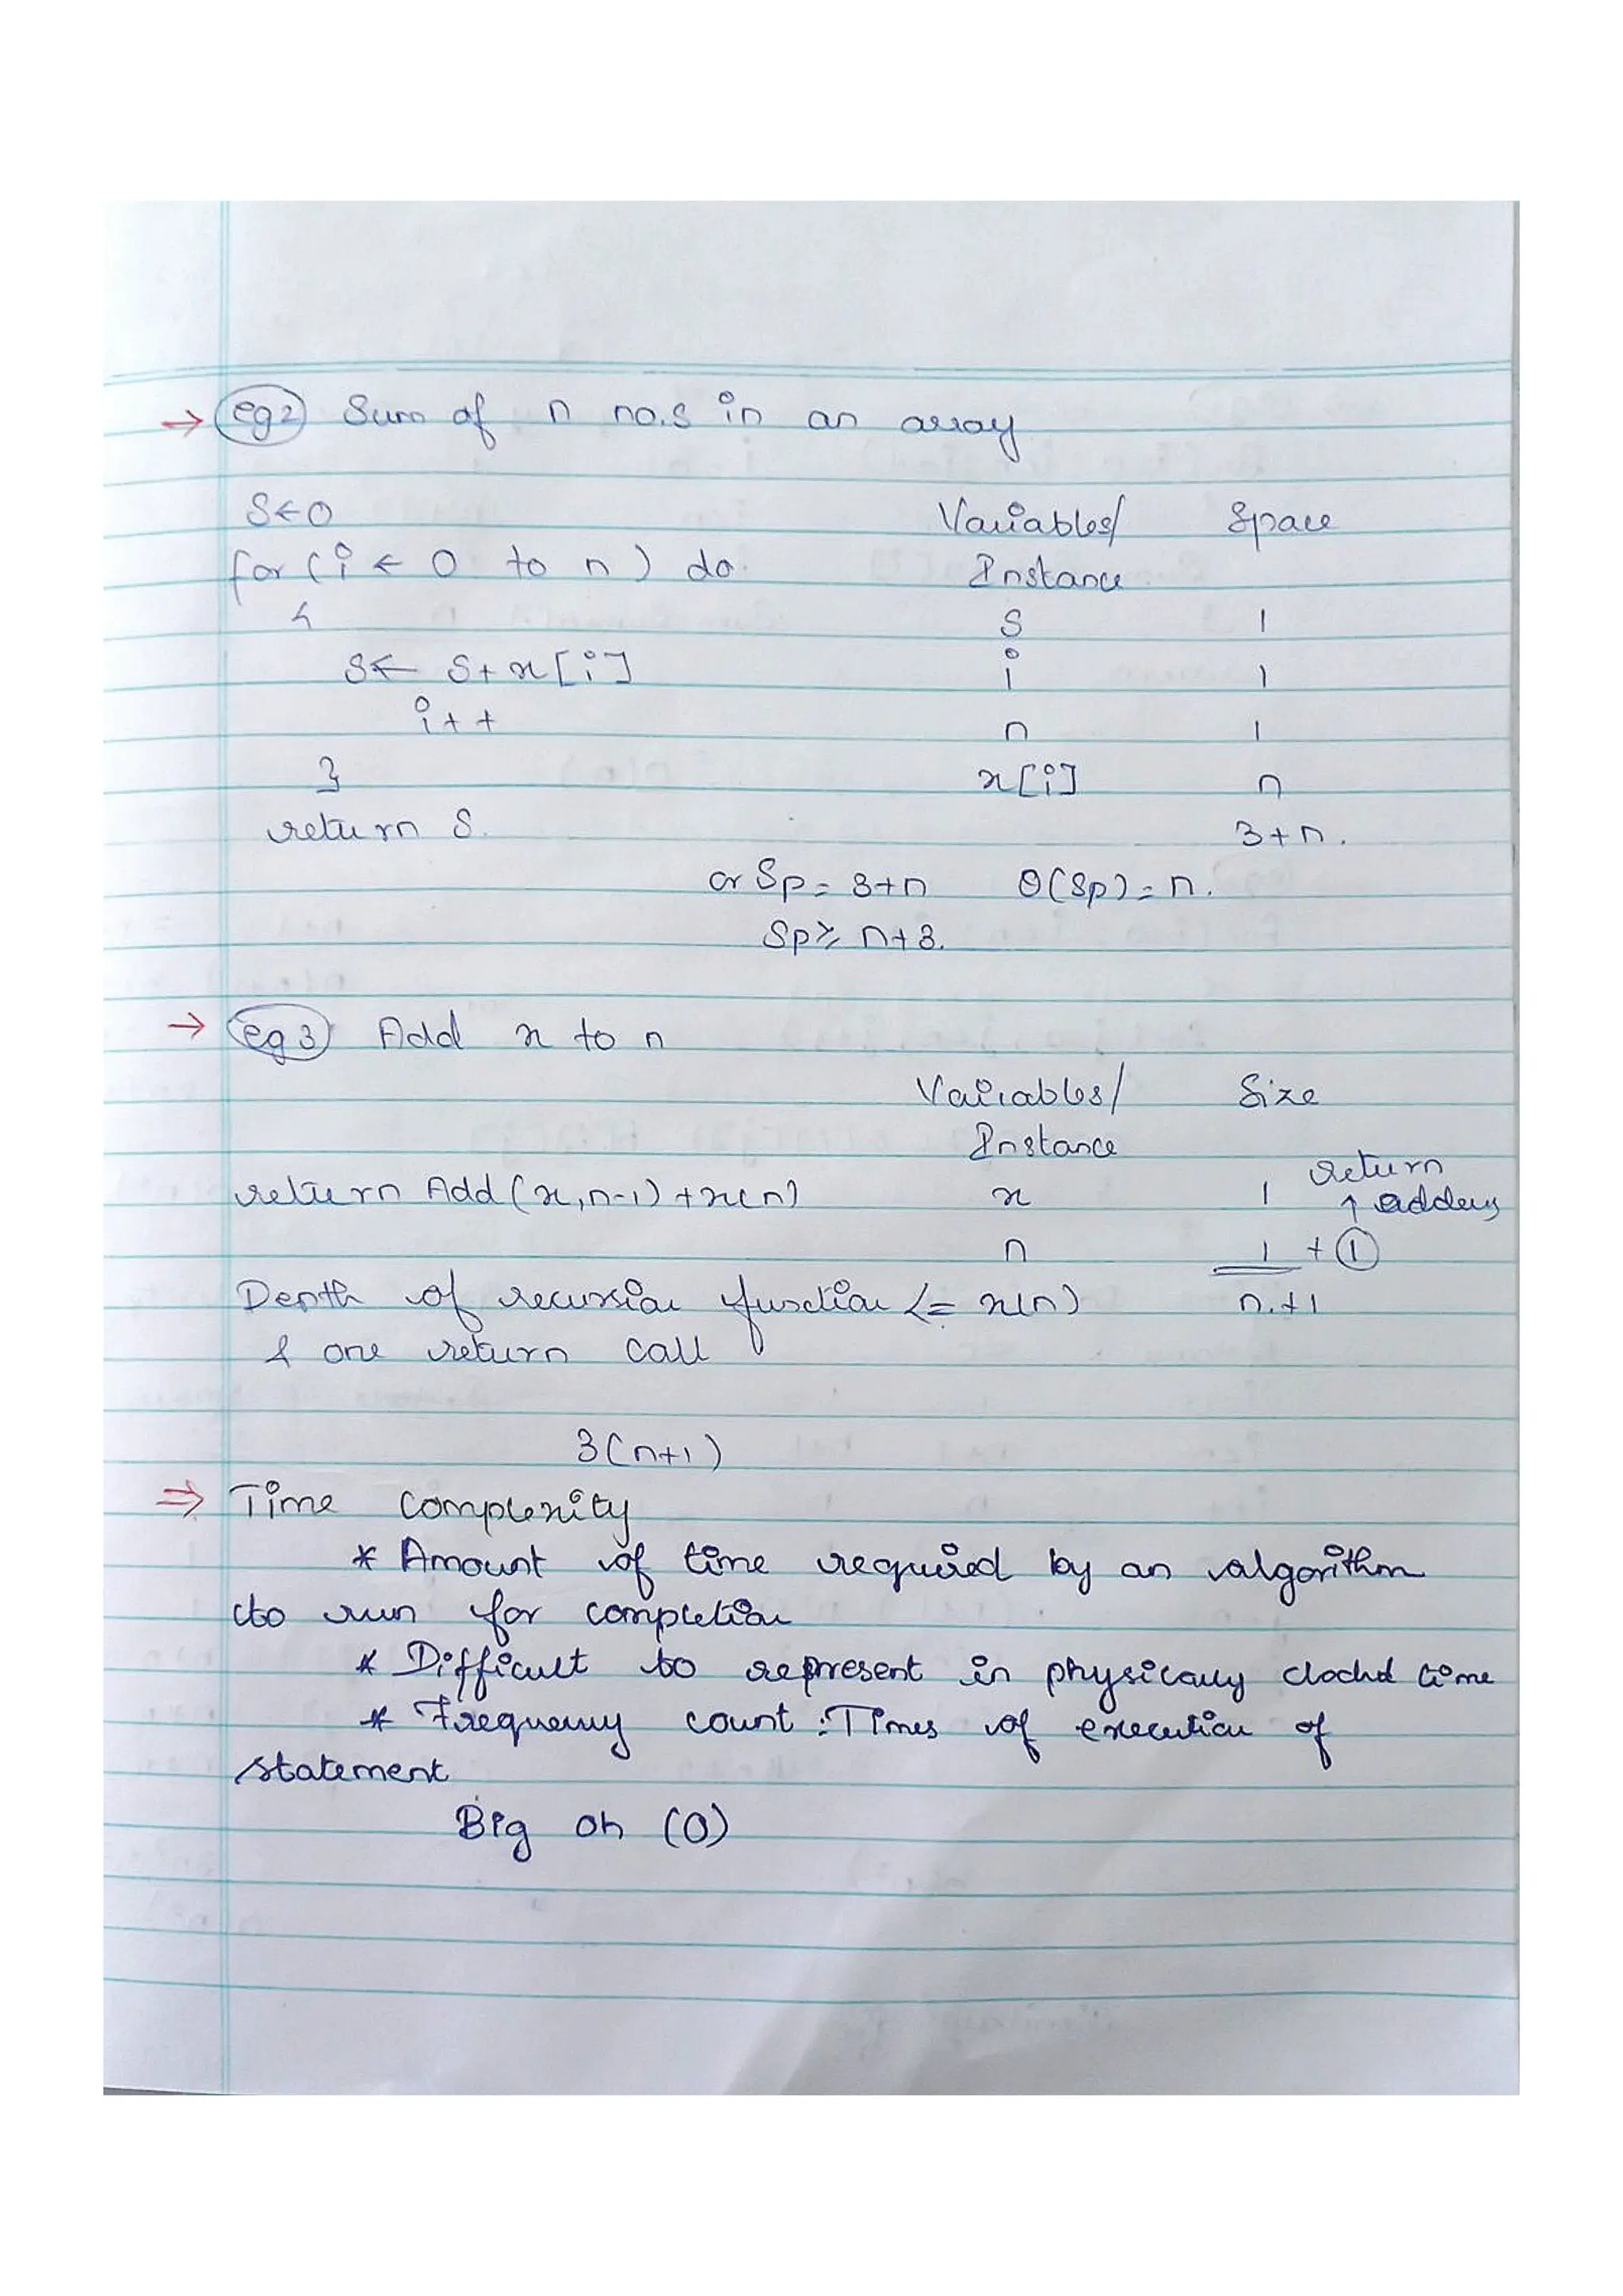 → eg2 Sum of n no.s in an array
S←0 Variables/ Space
for (i ← 0 to n) do. Instance
{ S 1
S← S+x[i] i 1
i++ n 1
} x[i] n
return S. 3+n.
or Sp = 3+n θ(Sp) = n.
Sp ≥ n+3.
→ eg 3 Add x to n
Variables/ Size
Instance
return Add(x,n-1)+x(n) x 1 return
↑ address
n 1 + 1
Depth of recursion function <= x(n) n.+1
& one return call
3(n+1)
⇒ Time Complexity
* Amount of time required by an algorithm
to run for completion
* Difficult to represent in physically clocked time
* Frequency count : Times of execution of
statement
Big oh (O)